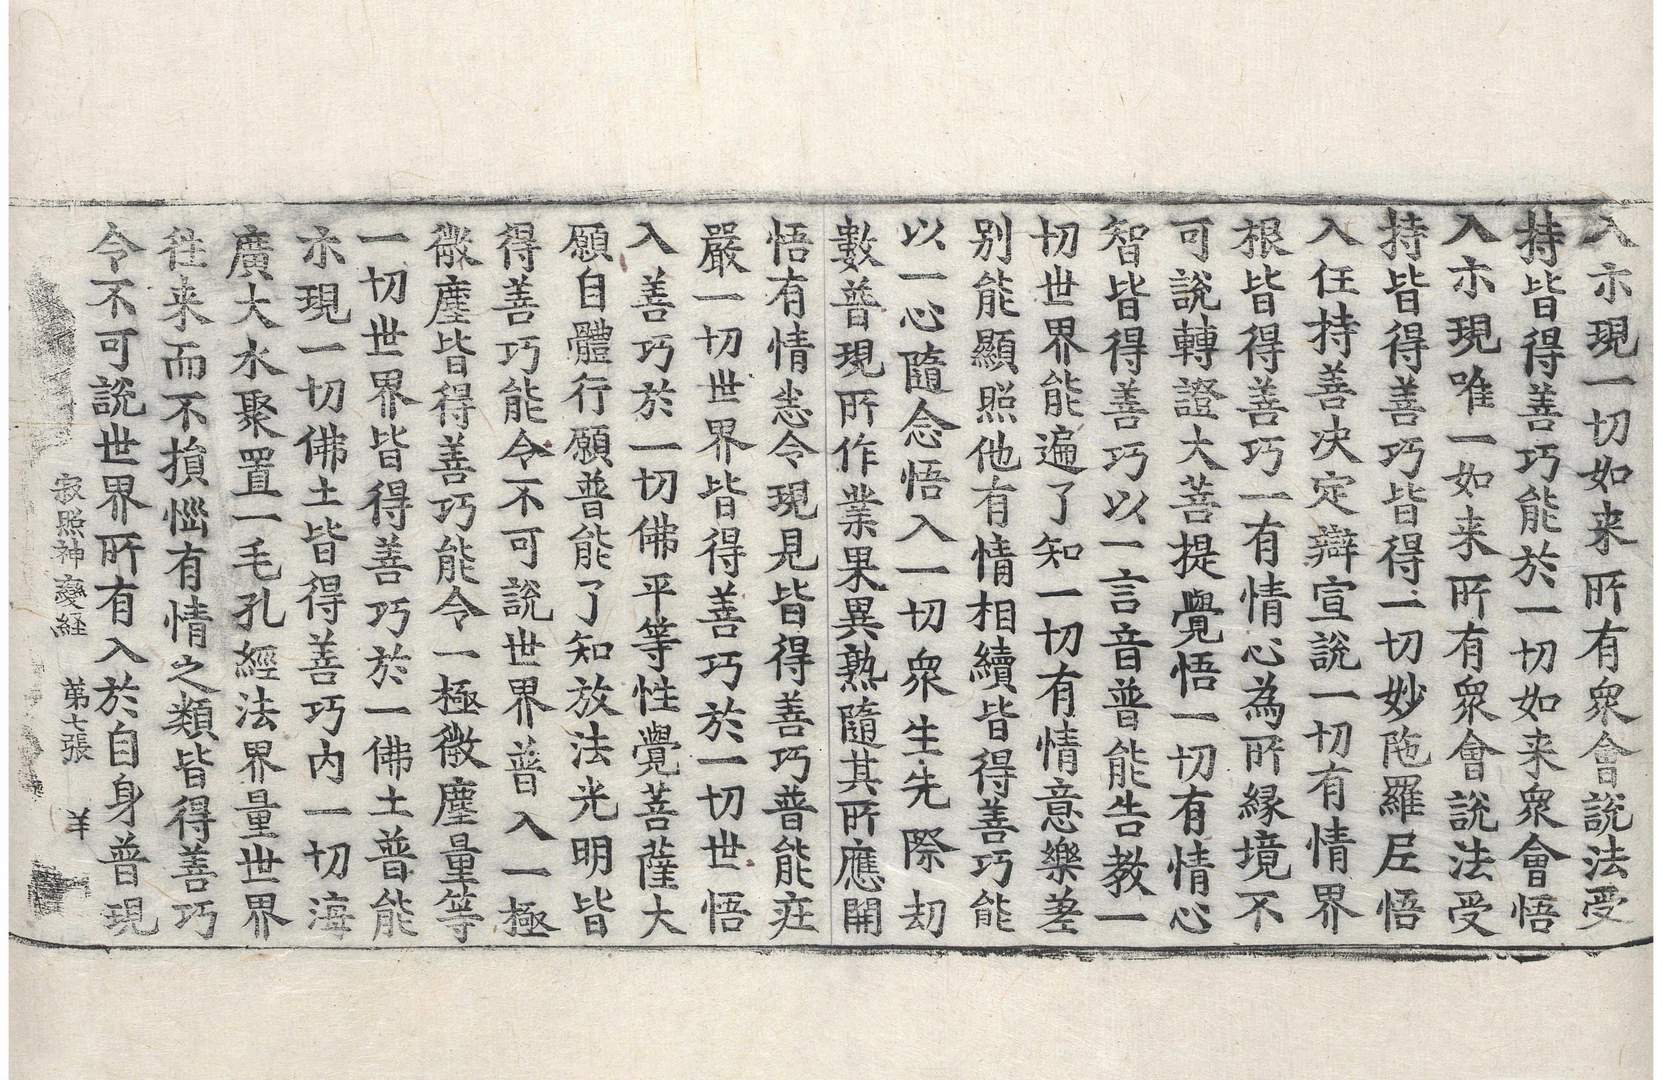 入尒現一切如来所有衆會說法受
持皆得善巧能於一切如来衆會悟
入尒現唯一如来所有衆會說法受
持皆得善巧皆得一切妙陁羅尼悟
入任持善决定辯宣說一切有情界
根皆得善巧一有情心為所緣境不
可說轉證大菩提覺悟一切有情心
智皆得善巧以一言音普能告教一
切世界能遍了知一切有情意樂差
別能顯照他有情相續皆得善巧能
以一心隨念悟入一切衆生先際劫
數普現所作業果異熟隨其所應開
悟有情悉令現見皆得善巧普能莊
嚴一切世界皆得善巧於一切世悟
入善巧於一切佛平等性覺菩薩大
願自體行願普能了知放法光明皆
得善巧能令不可說世界普入一極
微塵皆得善巧能令一極微塵量等
一切世界皆得善巧於一佛土普能
尒現一切佛土皆得善巧內一切海
廣大水聚置一毛孔經法界量世界
往来而不損惱有情之類皆得善巧
令不可說世界所有入於自身普現
寂照神變経　第七張　羊